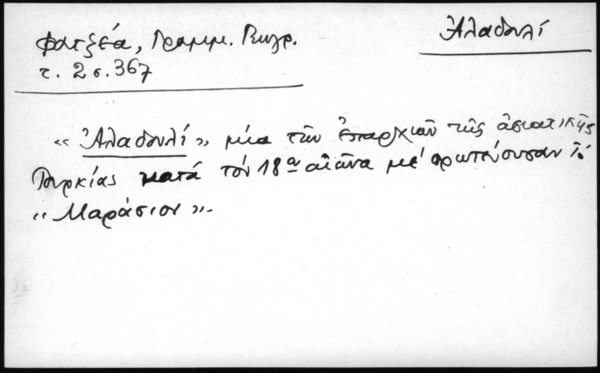 Φατζέά, Γραμμ. Γεωγρ.
τ. 2 σ. 367
Ἀλαδουλί
« Ἀλαδουλί » μία τῶν ἐπαρχιῶν τῆς ἀσιατικῆς
Τουρκίας κατά τόν 18ον αἰῶνα μέ πρωτεύουσαν τό
« Μαράσιον ».